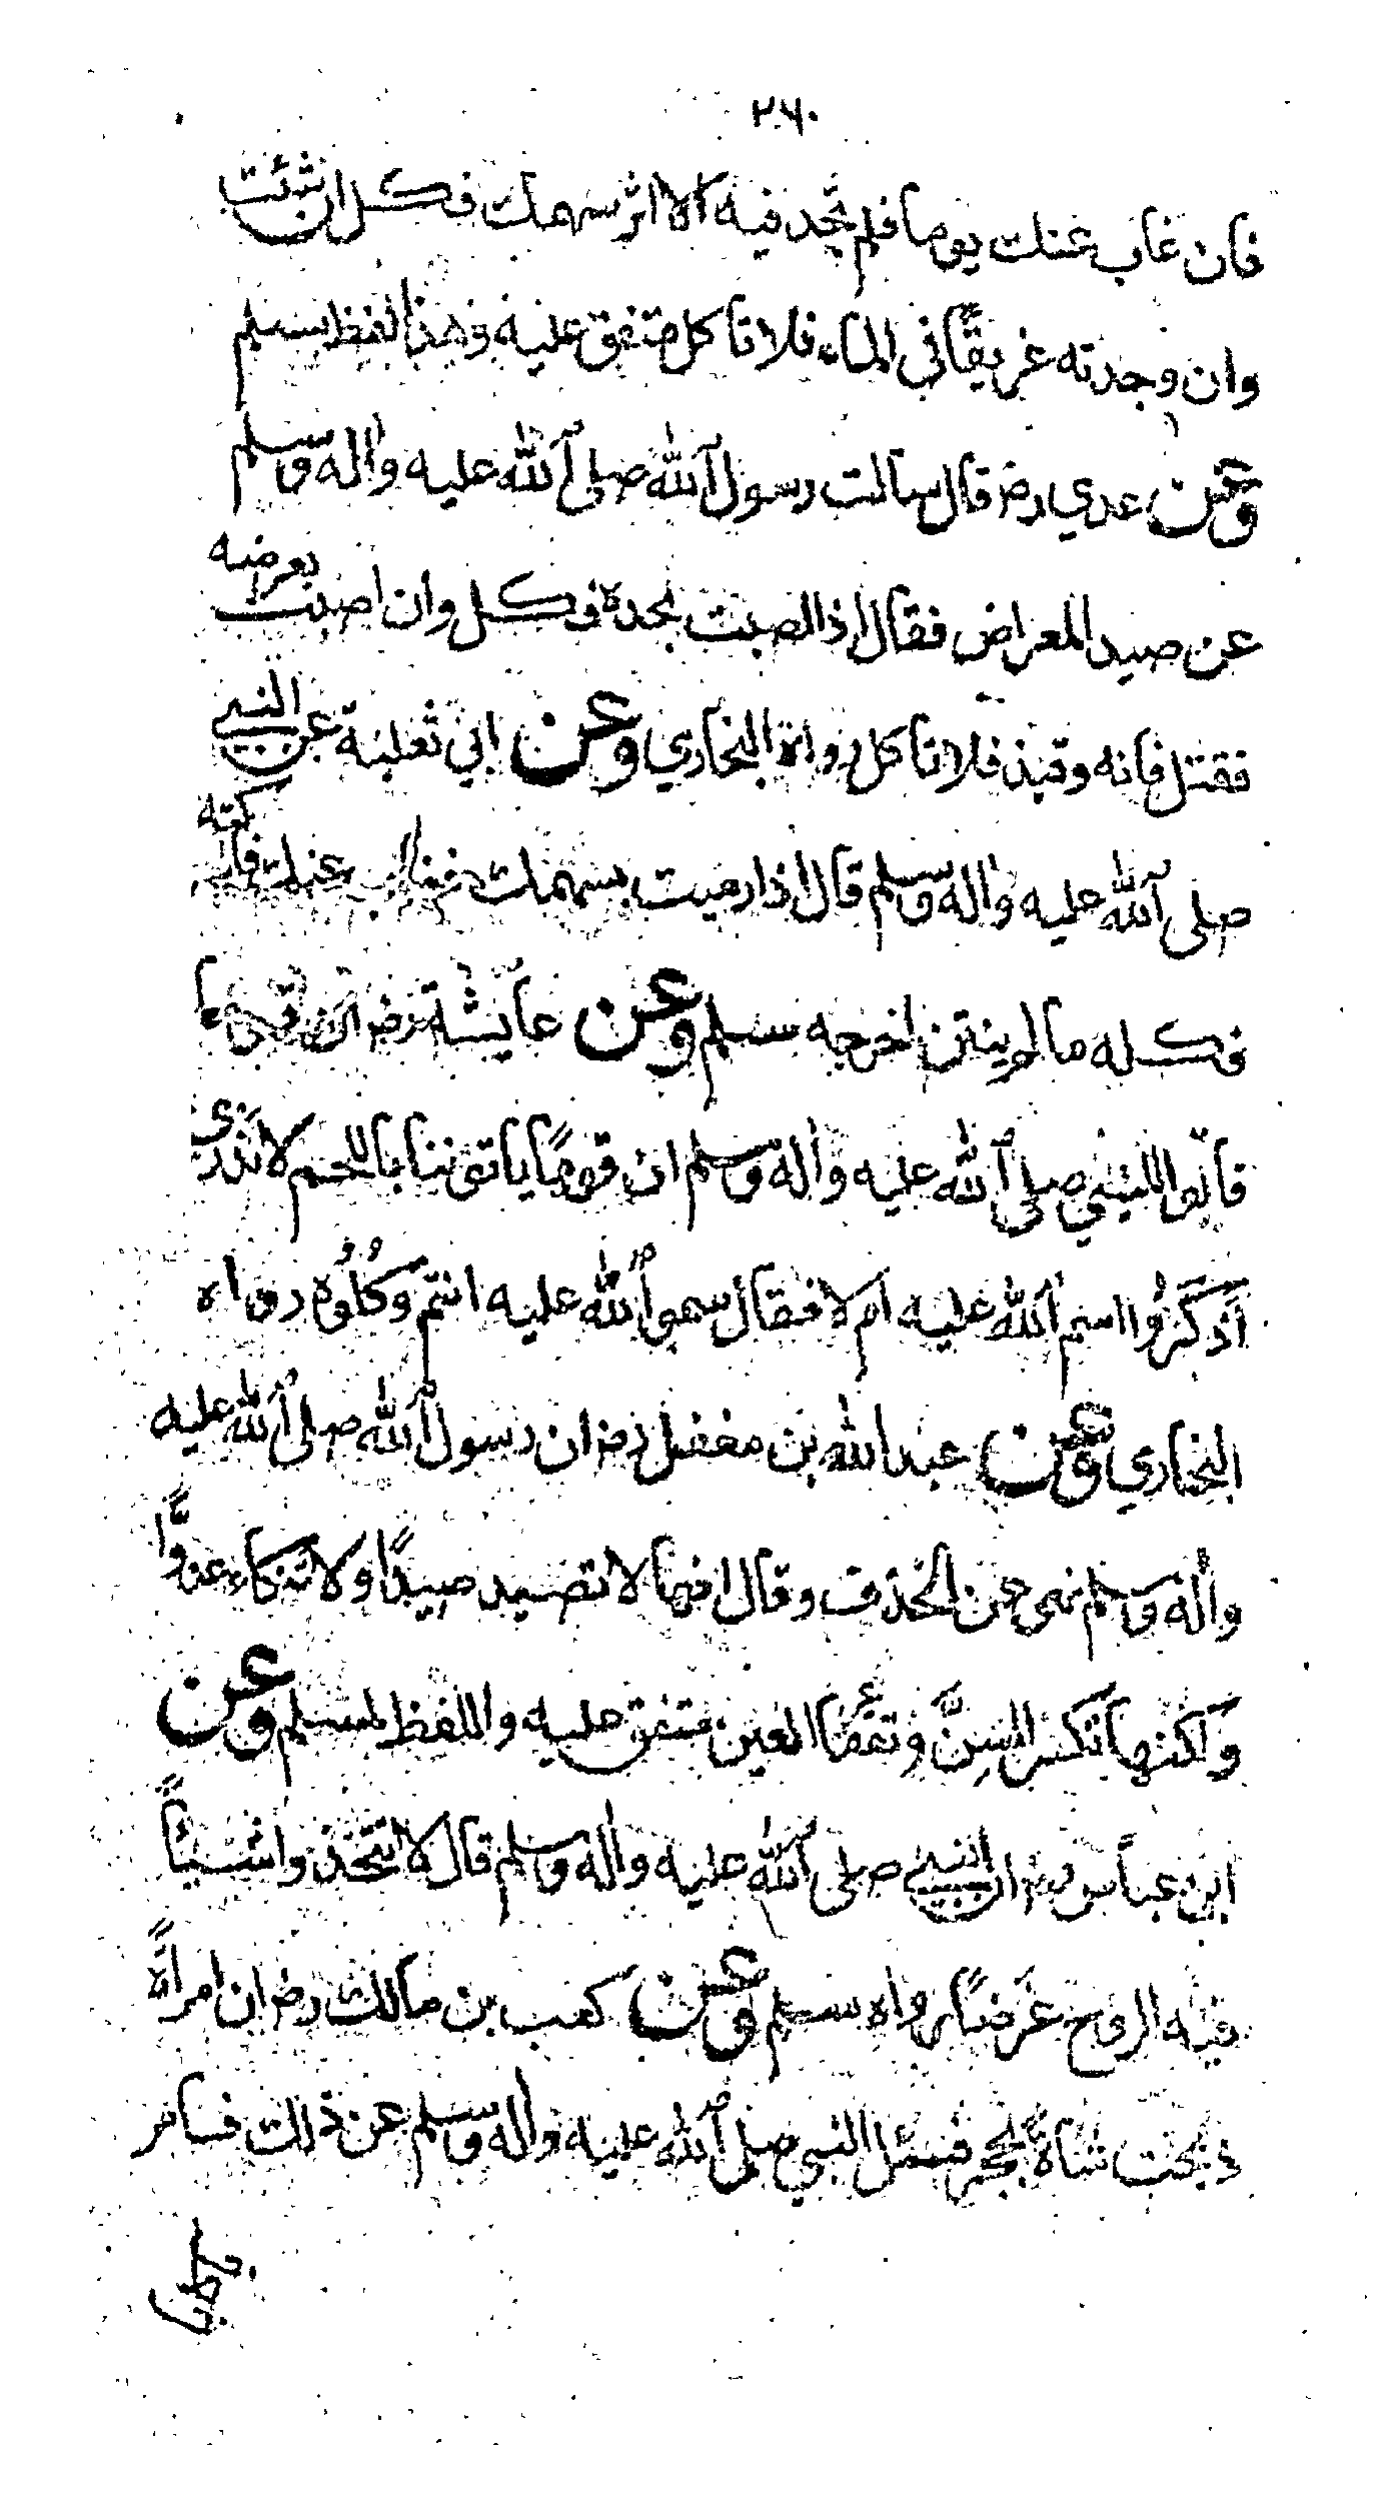 ٢٦٠
فان غاب عنك يوما فلم تجد فيه الا اثر سهمك فكل ان شئت
وان وجدته غريقًا في الماء فلا تاكل متفق عليه وهذا لفظ مسلم
وعن عدي رض قال سالت رسول الله صلى الله عليه واله وسلم
عن صيد المعراض فقال اذا اصبت بحده فكل وان اصبت بعرضه
فقتل فانه وقيذ فلا تاكل رواه البخاري وعن ابي ثعلبة عن النبي
صلى الله عليه واله وسلم قال اذا رميت بسهمك فغاب عنك فادركته
فكله ما لم ينتن اخرجه مسلم وعن عايشة رض ان قوما
قالوا للنبي صلى الله عليه واله وسلم ان قومًا ياتوننا باللحم لا ندري
أذَكَرُوا اسم الله عليه ام لا فقال سموا الله عليه انتم وكُلُوُه رواه
البخاري وعن عبد الله بن مغفل رض ان رسول الله صلى الله عليه
واله وسلم نهى عن الخذف وقال انها لا تصيد صيدًا ولا تنكاء عدوًّا
وَلكنها تكسر السِنَّ وتفقأ العين متفق عليه واللفظ لمسلم وعن
ابن عباس رض ان النبي صلى الله عليه واله وسلم قال لا تتخذوا شيئاً
فيه الروح غَرَضًا رواه مسلم وعن كعب بن مالك رض ان امرأةً
ذبحت شاةً بحجر فسئل النبي صلى الله عليه واله وسلم عن ذلك فامر